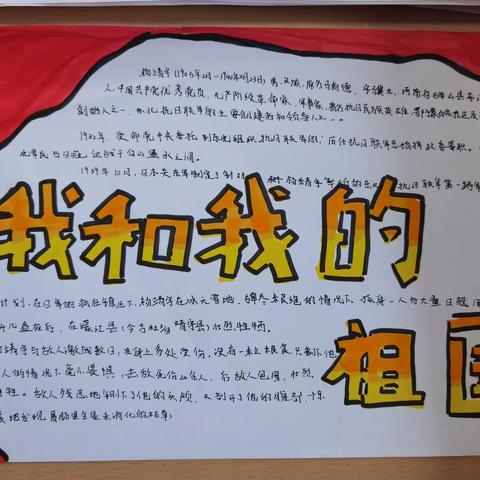 杨靖宇(1905年2月-1940年2月23日)男,汉族,原名马尚德,字骥生,河南省确山县
人,中国共产党优秀党员,无产阶级革命家、军事家、著名抗日民族英雄
创始人之一,东北抗日联军的主要创建者和领导人之一。
1932年,受命党中央委托到东北组织抗日联军,历任抗日联军总指挥政委等职。
军民与日寇血战于白山黑水之间。
1939年
抗日联军第一路军
我和我的
祖国
计划,在日军的
杨靖宇在冰天雪地、弹尽粮绝的情况下,孤身一人与大量日寇周
几昼夜后,在濛江县(今吉林省靖宇县)壮烈牺牲。
靖宇与敌人激战数日,在身上多处受伤,没有一粒粮食,只剩下他
人的情况下毫不畏惧,击敌死伤20余人,后敌人包围,壮烈
牲。敌人残忍地割下了他的头颅,又剖开了他的腹部,
地发现胃肠里尽是未消化的枯草